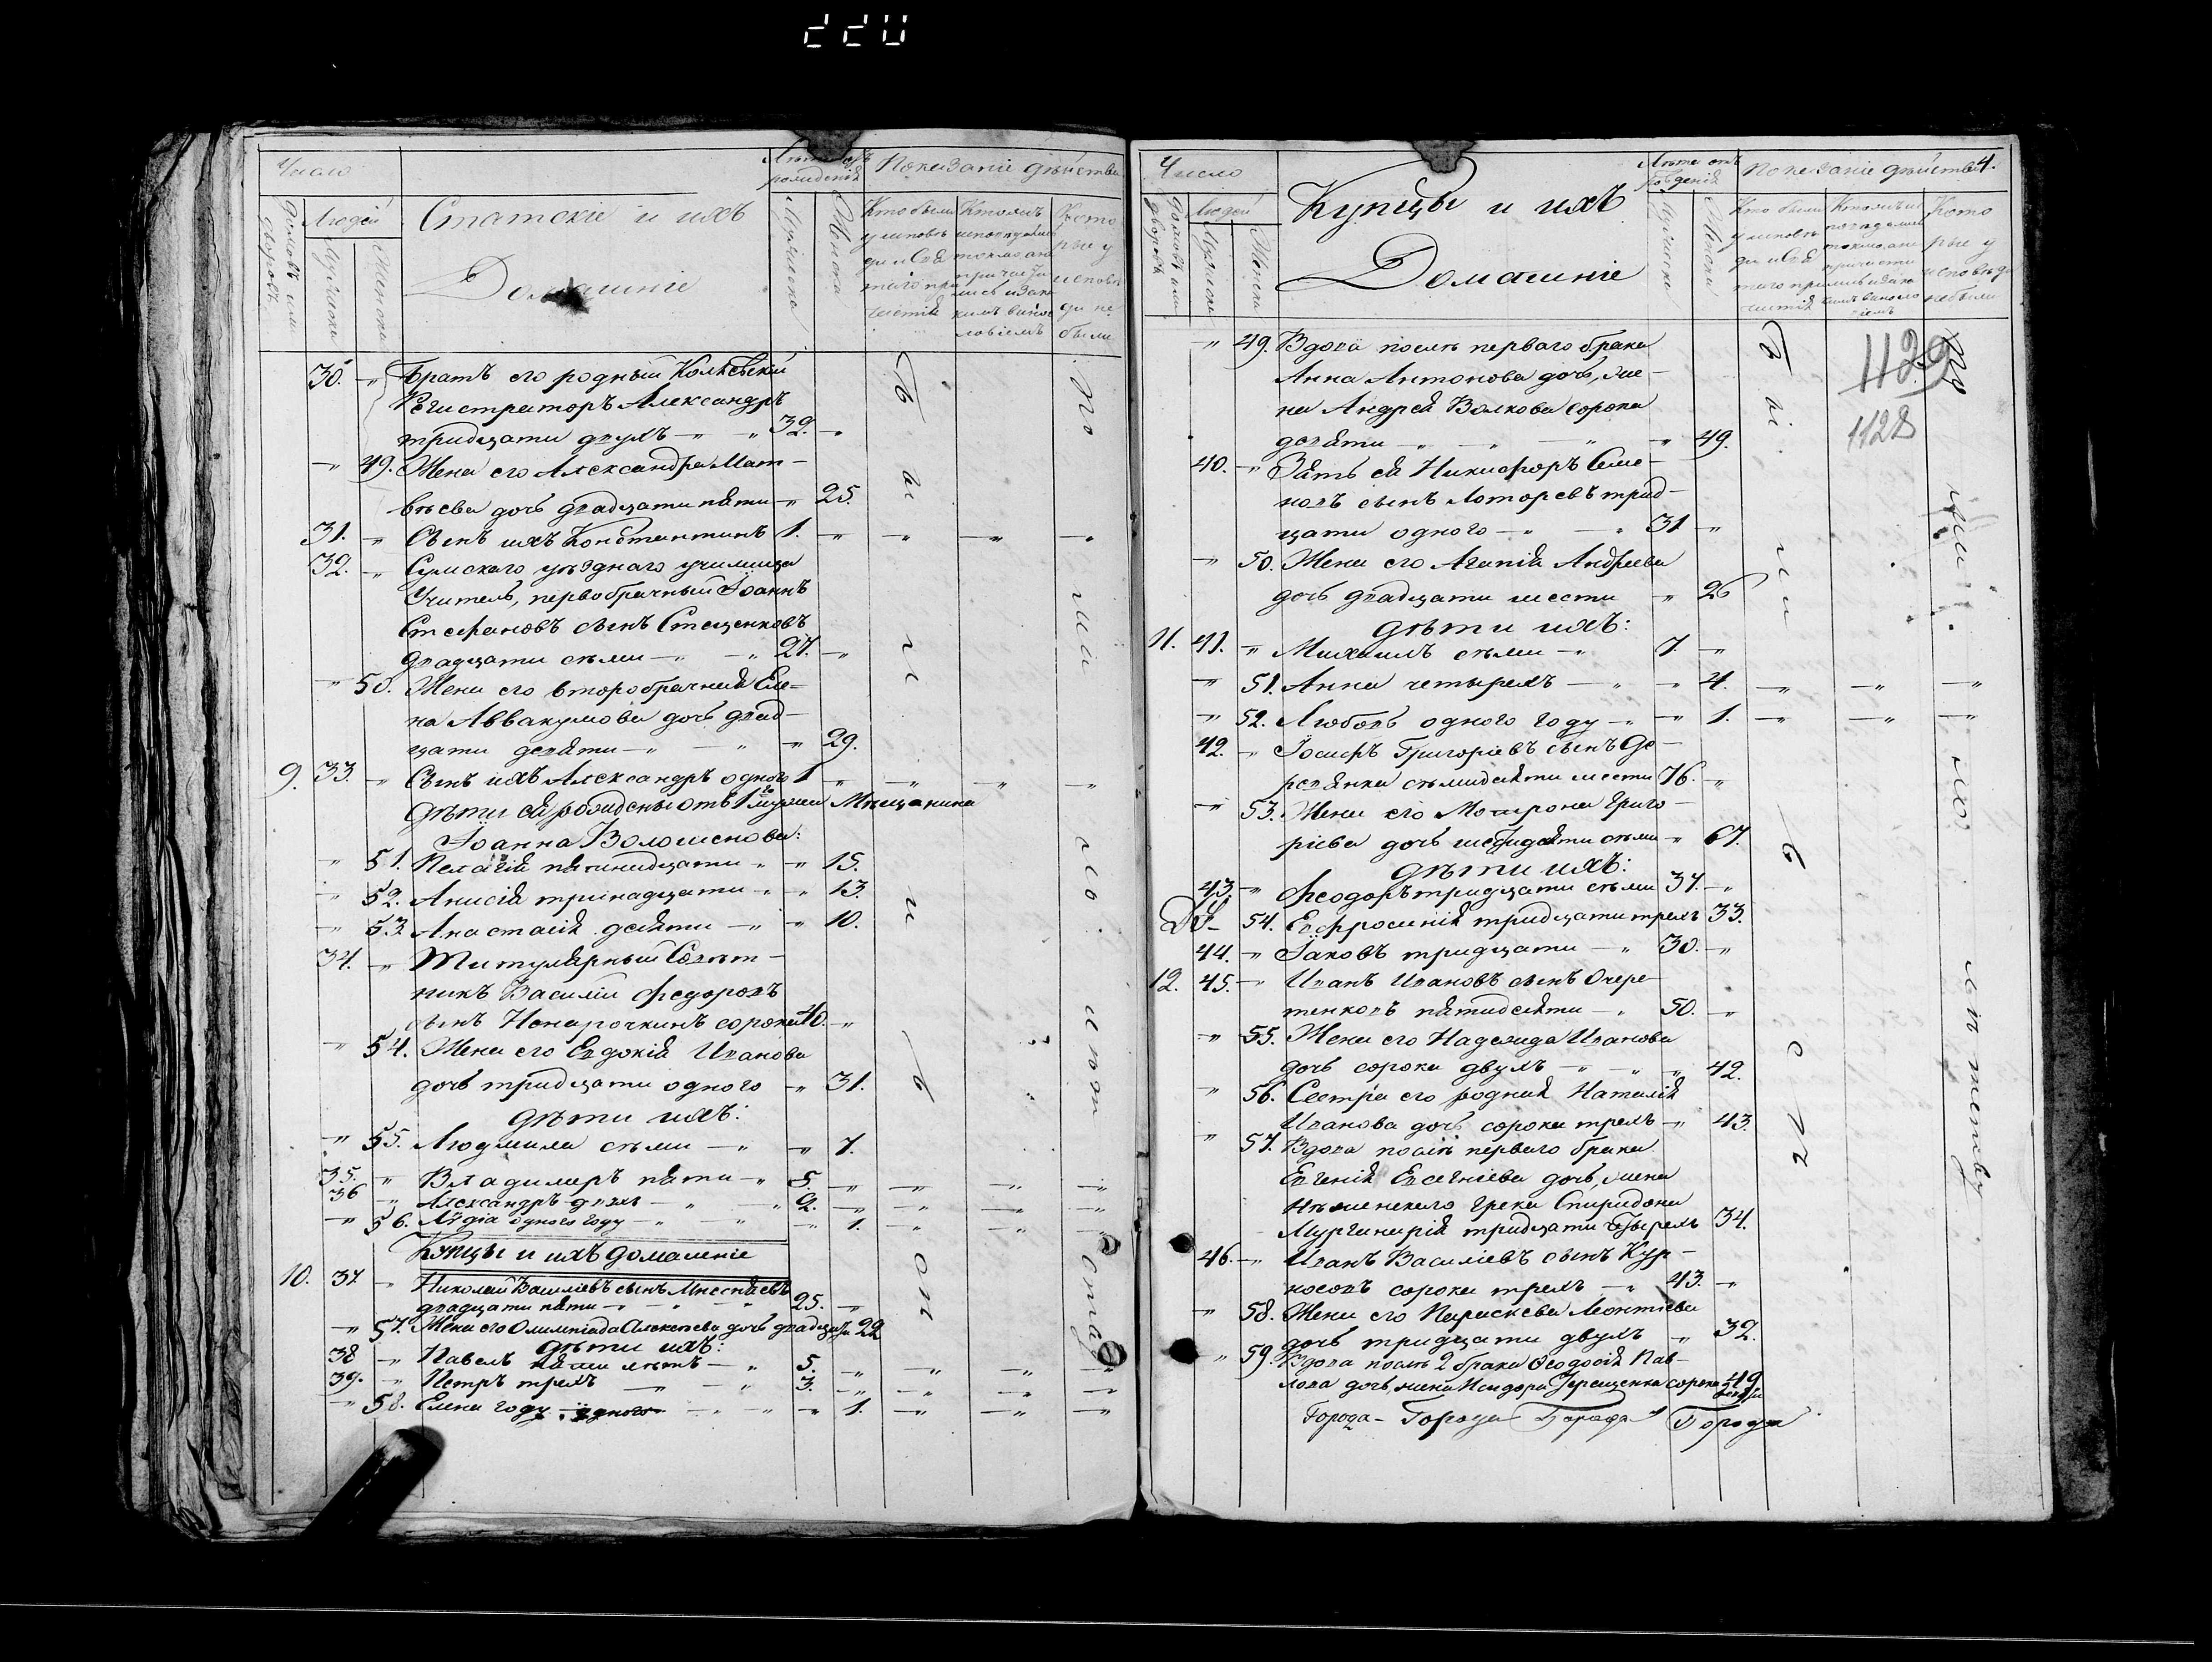 220
Число
Лѣта отъ рожденія
Показаніе дѣйства
Домовъ или дворовъ
Людей
Мужеска
Женска
Статскіе и ихъ
Домашніе
Мужеска
Женска
Кто были у исповѣди и Святаго причастія
Которые у исповѣди не были
30. Братъ его родный Коллежскій
Регистраторъ Александръ
тридцати двухъ 32.
49. Жена его Александра Мат-
вѣева дочь двадцати пяти 25.
31. Сынъ ихъ Константинъ 1.
32. Сумскаго уѣзднаго училища
Учитель, первобрачный Іоаннъ
Стефановъ сынъ Стеценковъ
двадцати семи 27.
50. Жена его второбрачная Еле-
на Аввакумова дочь двад-
цати девяти 29.
9. 33. Сынъ ихъ Александръ одного 1
Дѣти ея рожденые отъ 1го мужа Мещанина
Іоанна Волошенова:
51. Пелагія пятнадцати 15.
52. Анисія тринадцати 13.
53. Анастасія десяти 10.
34. Титулярный Совѣт-
никъ Василій Федоровъ
сынъ Ненарочкинъ сорока 40.
54. Жена его Евдокія Иванова
дочь тридцати одного 31.
Дѣти ихъ:
55. Людмила семи 7.
35. Владимеръ пяти 5.
36 Александръ двухъ 2.
56. Лідіа одного году 1.
Купцы и ихъ домашніе
10. 37 Николай Васильевъ сынъ
двадцати пяти 25.
57. Жена его Олимпіада Алексеева дочь двадцати 22
Дѣти ихъ:
38 Павелъ пяти лѣтъ 5.
39. Петръ трехъ 3.
58. Елена году одного 1.
Число
Лѣта отъ рожденія
Показаніе дѣйства 4.
Домовъ или дворовъ
Людей
Мужеска
Женска
Купцы и ихъ
Домашніе
Мужеска
Женска
Которые у исповѣди небыли
1129
1128
49. Вдова послѣ перваго брака
Анна Антонова дочь, же-
на Андрея Волкова сорока
девяти 49.
40. Зять ея Никифоръ Семе-
новъ сынъ Лоторевъ трид-
цати одного 31
50. Жена его Агапія Андреева
дочь двадцати шести 26
Дѣти ихъ:
11. 41. Михаилъ семи 7.
51. Анна четырехъ 4.
52. Любовь одного году 1.
42. Іосифъ Григоріевъ сынъ Де-
ревянка семидесяти шести 76.
53. Жена его Мотрона Григо-
ріева дочь шестидесяти семи 67.
Дѣти ихъ:
43. Феодоръ тридцати семи 37.
54. Ефросинія тридцати трехъ 33.
44. Іаковъ тридцати 30.
12. 45. Иванъ Ивановъ сынъ Очере-
тенковъ пятидесяти 50.
55. Жена его Надежда Иванова
дочь сорока двухъ 42.
56. Сестра его родная Наталія
Иванова дочь сорока трехъ 43.
57. Вдова послѣ перваго брака
Евгенія Евсегніева дочь, жена
грека Спиридона
тридцати четырехъ 34.
46. Иванъ Василіевъ сынъ Кур-
носовъ сорока трехъ 43.
58. Жена его Параскева Леонтіева
дочь тридцати двухъ 32.
59. Вдова послѣ 2 брака Феодосія Пав-
лова дочь, жена Исидора Терещенка сорока 49
девяти
Города - Города Города Города